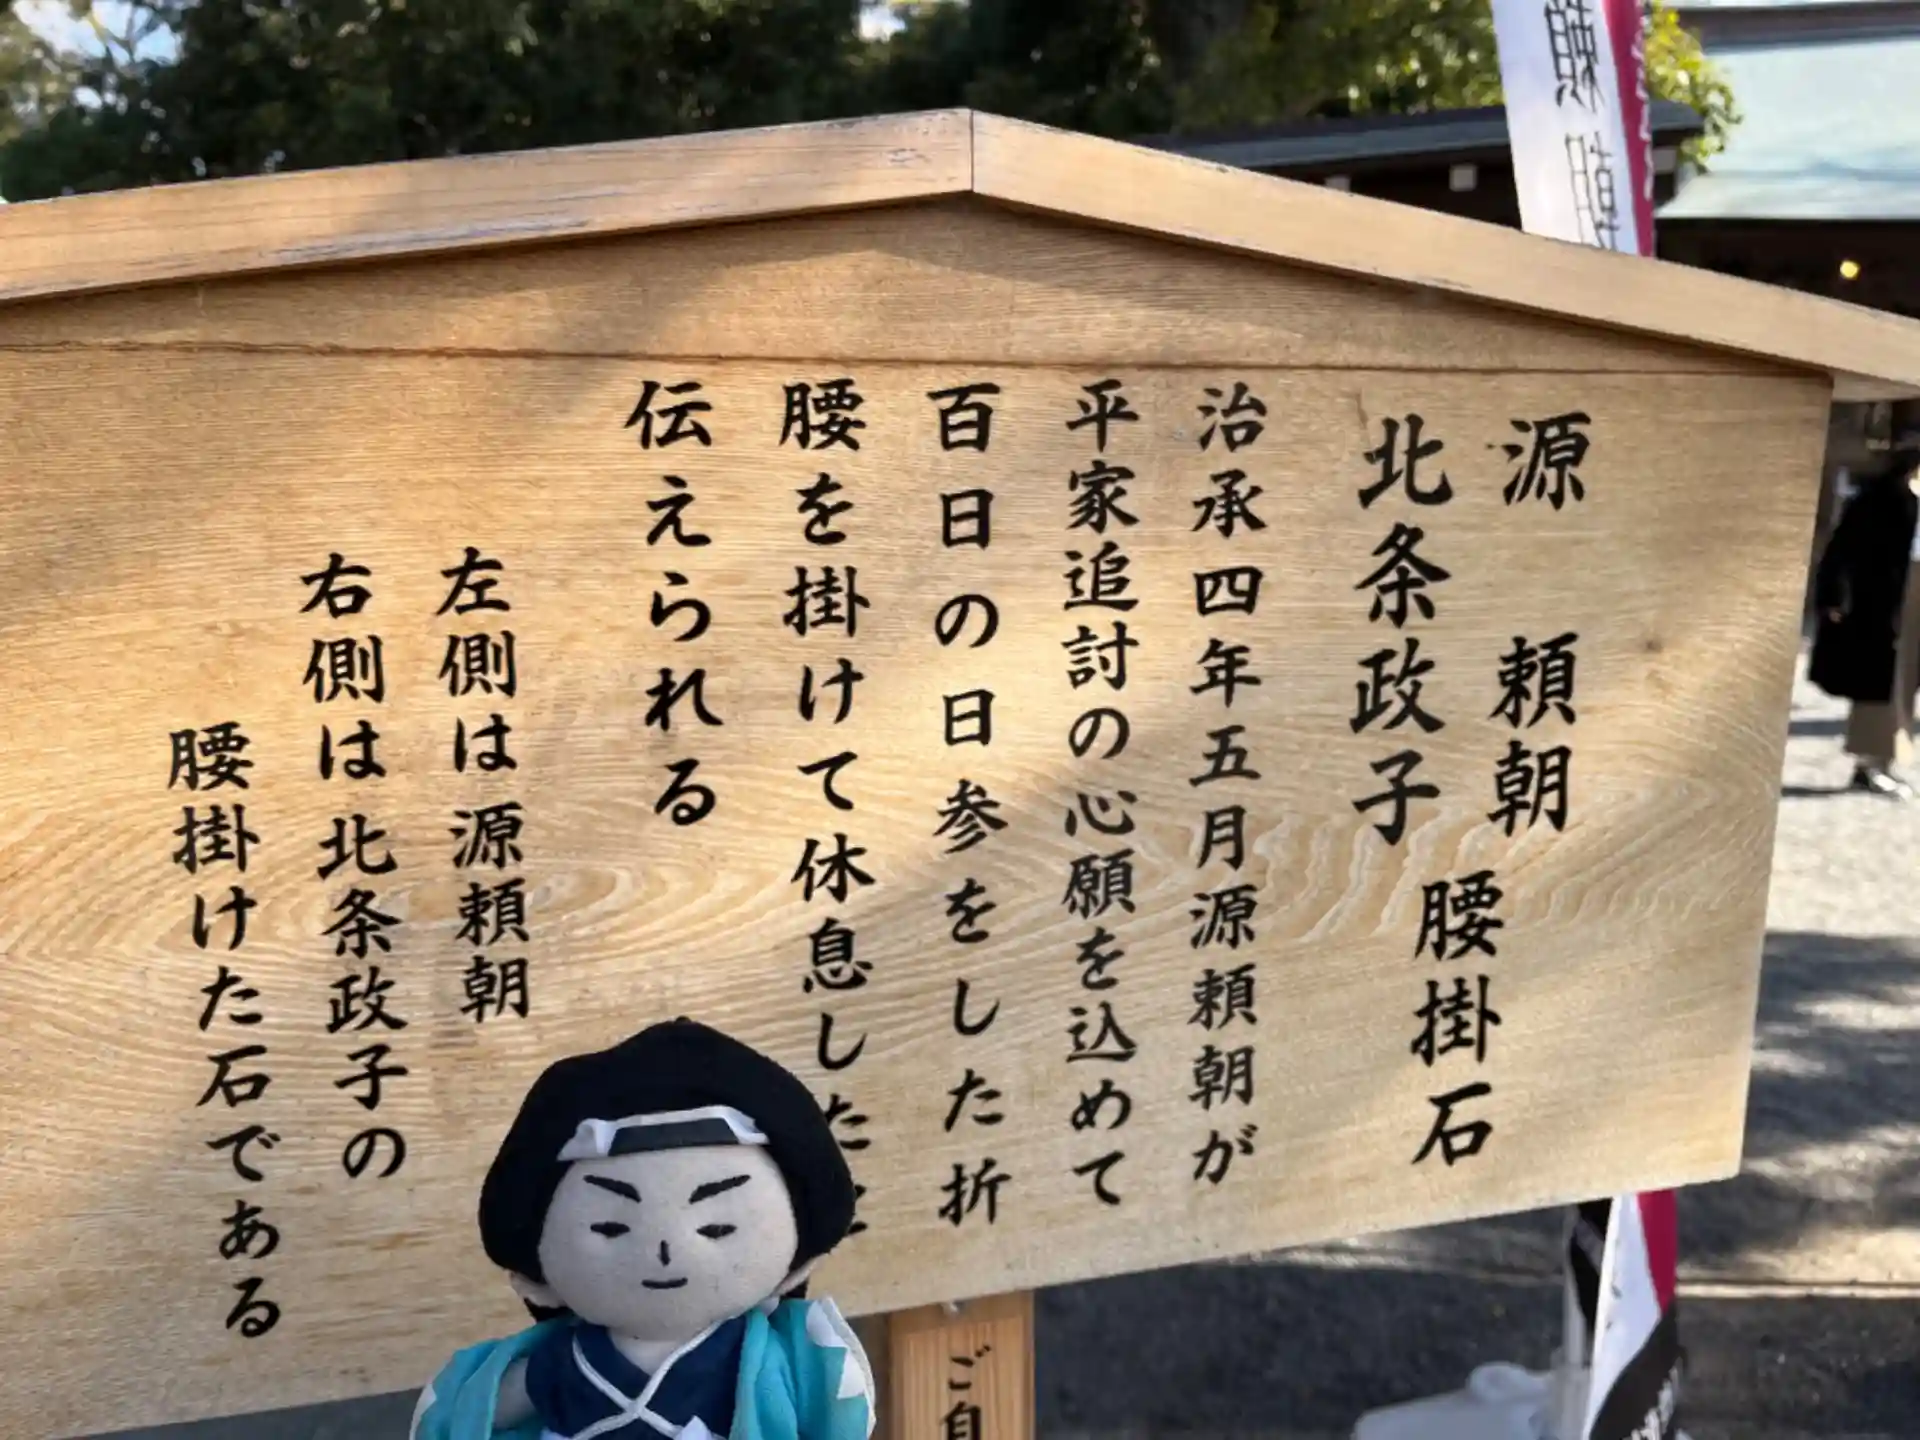 源 頼朝
北条政子
腰掛石
治承四年五月源頼朝が
平家追討の心願を込めて
百日の日参をした折
腰を掛けて休息したと
伝えられる
左側は源頼朝
右側は北条政子の
腰掛けた石である
ご自